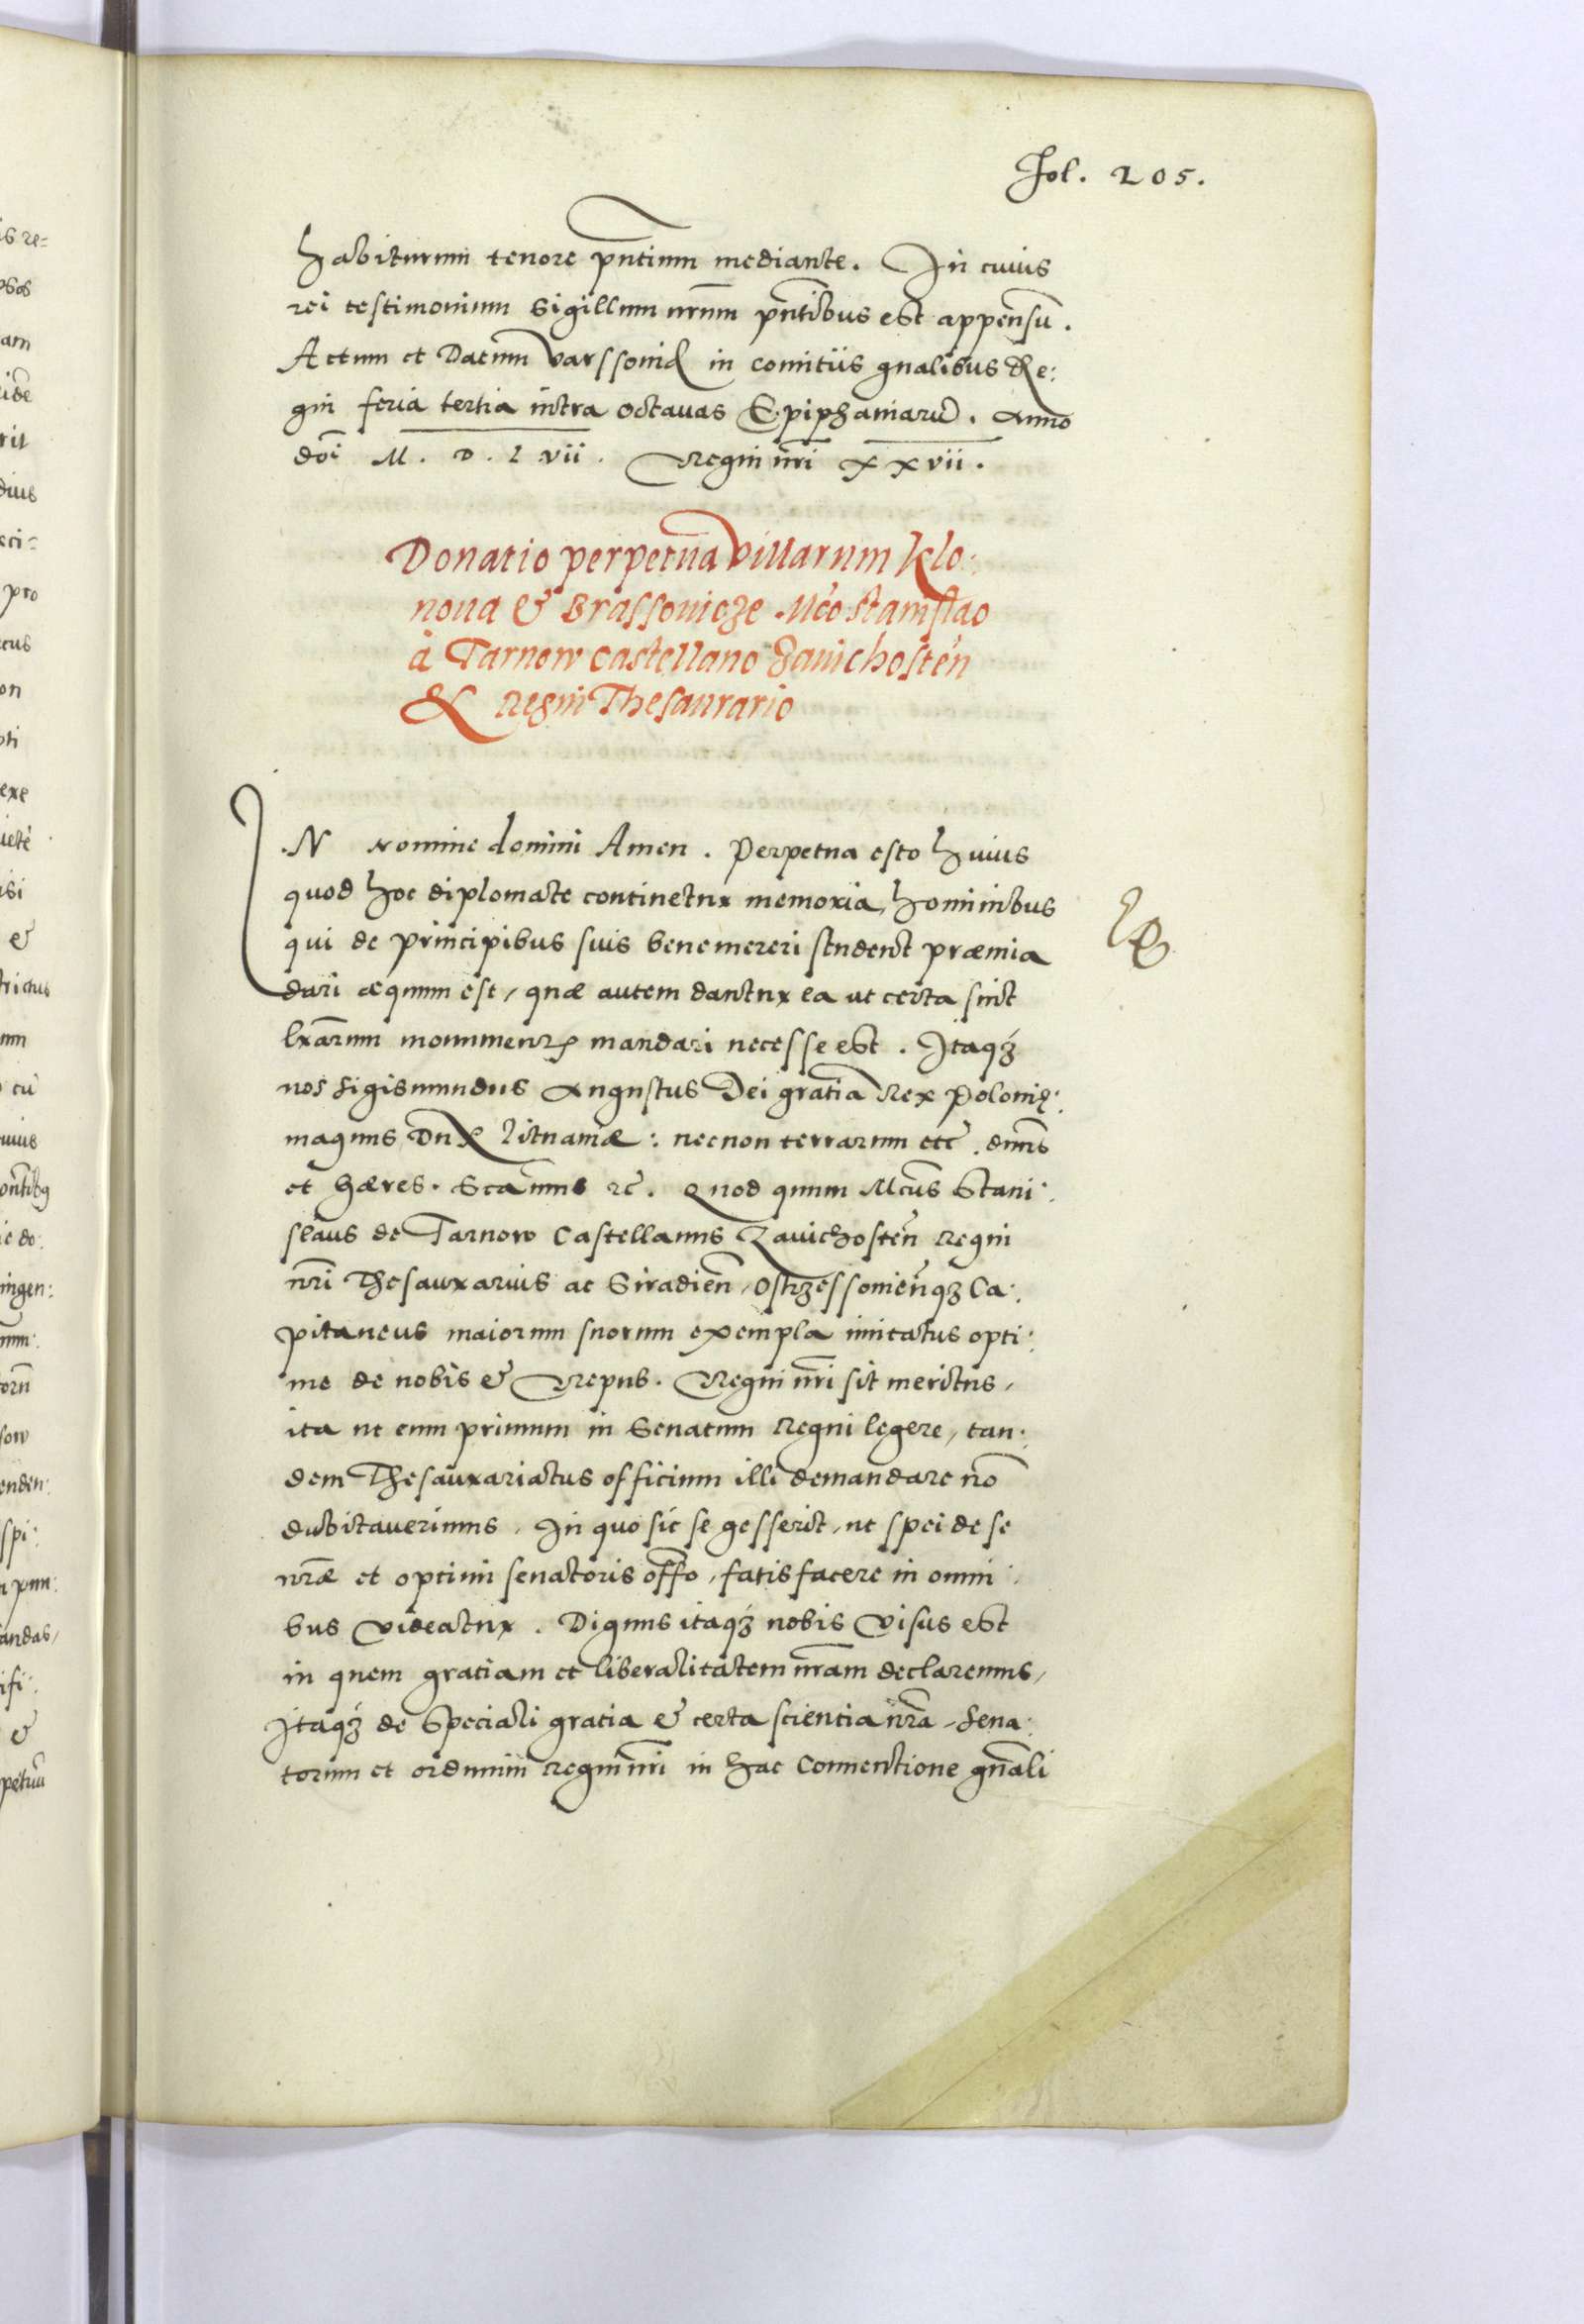 Fol. 205.
habiturum tenore pntium mediante. In cuius
rei testimonium Sigillum nrum pntibus est appensu.
Actum et Datum Varssovię in comitiis gnalibus Re:
gni feria tertia intra octavas Epiphaniaru. Anno
doi M. D. L vii. Regni nri xxvii.
Donatio perpetua Villarum Klo:
noua & Brassouicze Mco Stanislao
à Tarnow Castellano Zauichosten
& Regni Thesaurario
IN Nomine domini Amen. Perpetua esto huius
quod hoc diplomate continetur memoria, hominibus
qui de principibus suis benemereri student præmia
dari æquum est, quæ autem dantur ea ut certa sint
lrarum monumentis mandari necesse est. Itaqʒ
nos Sigismundus Augustus Dei gratia Rex Polonię:
magnus Dux Lituaniæ: necnon terrarum etc. dnus
et hæres. Scamus rc. Quod quum Mcus Stani:
slaus de Tarnow Castellanus Zauichosten Regni
nri Thesaurarius ac Siradien, Ostrzessouienqʒ Ca:
pitaneus maiorum suorum exempla imitatus opti:
me de nobis & Repub. Regni nri sit meritus,
ita ut eum primum in Senatum Regni legere, tan:
dem Thesaurariatus officium illi demandare no
dubitauerimus, In quo sic se gesserit, ut spei de se
nræ et optimi senatoris offo, satisfacere in omni:
bus videatur. Dignus itaqʒ nobis visus est
in quem gratiam et liberalitatem nram declaremus,
Itaqʒ de Speciali gratia & certa scientia nra, Sena:
torum et ordinum Regni nri in hac Conuentione gnali